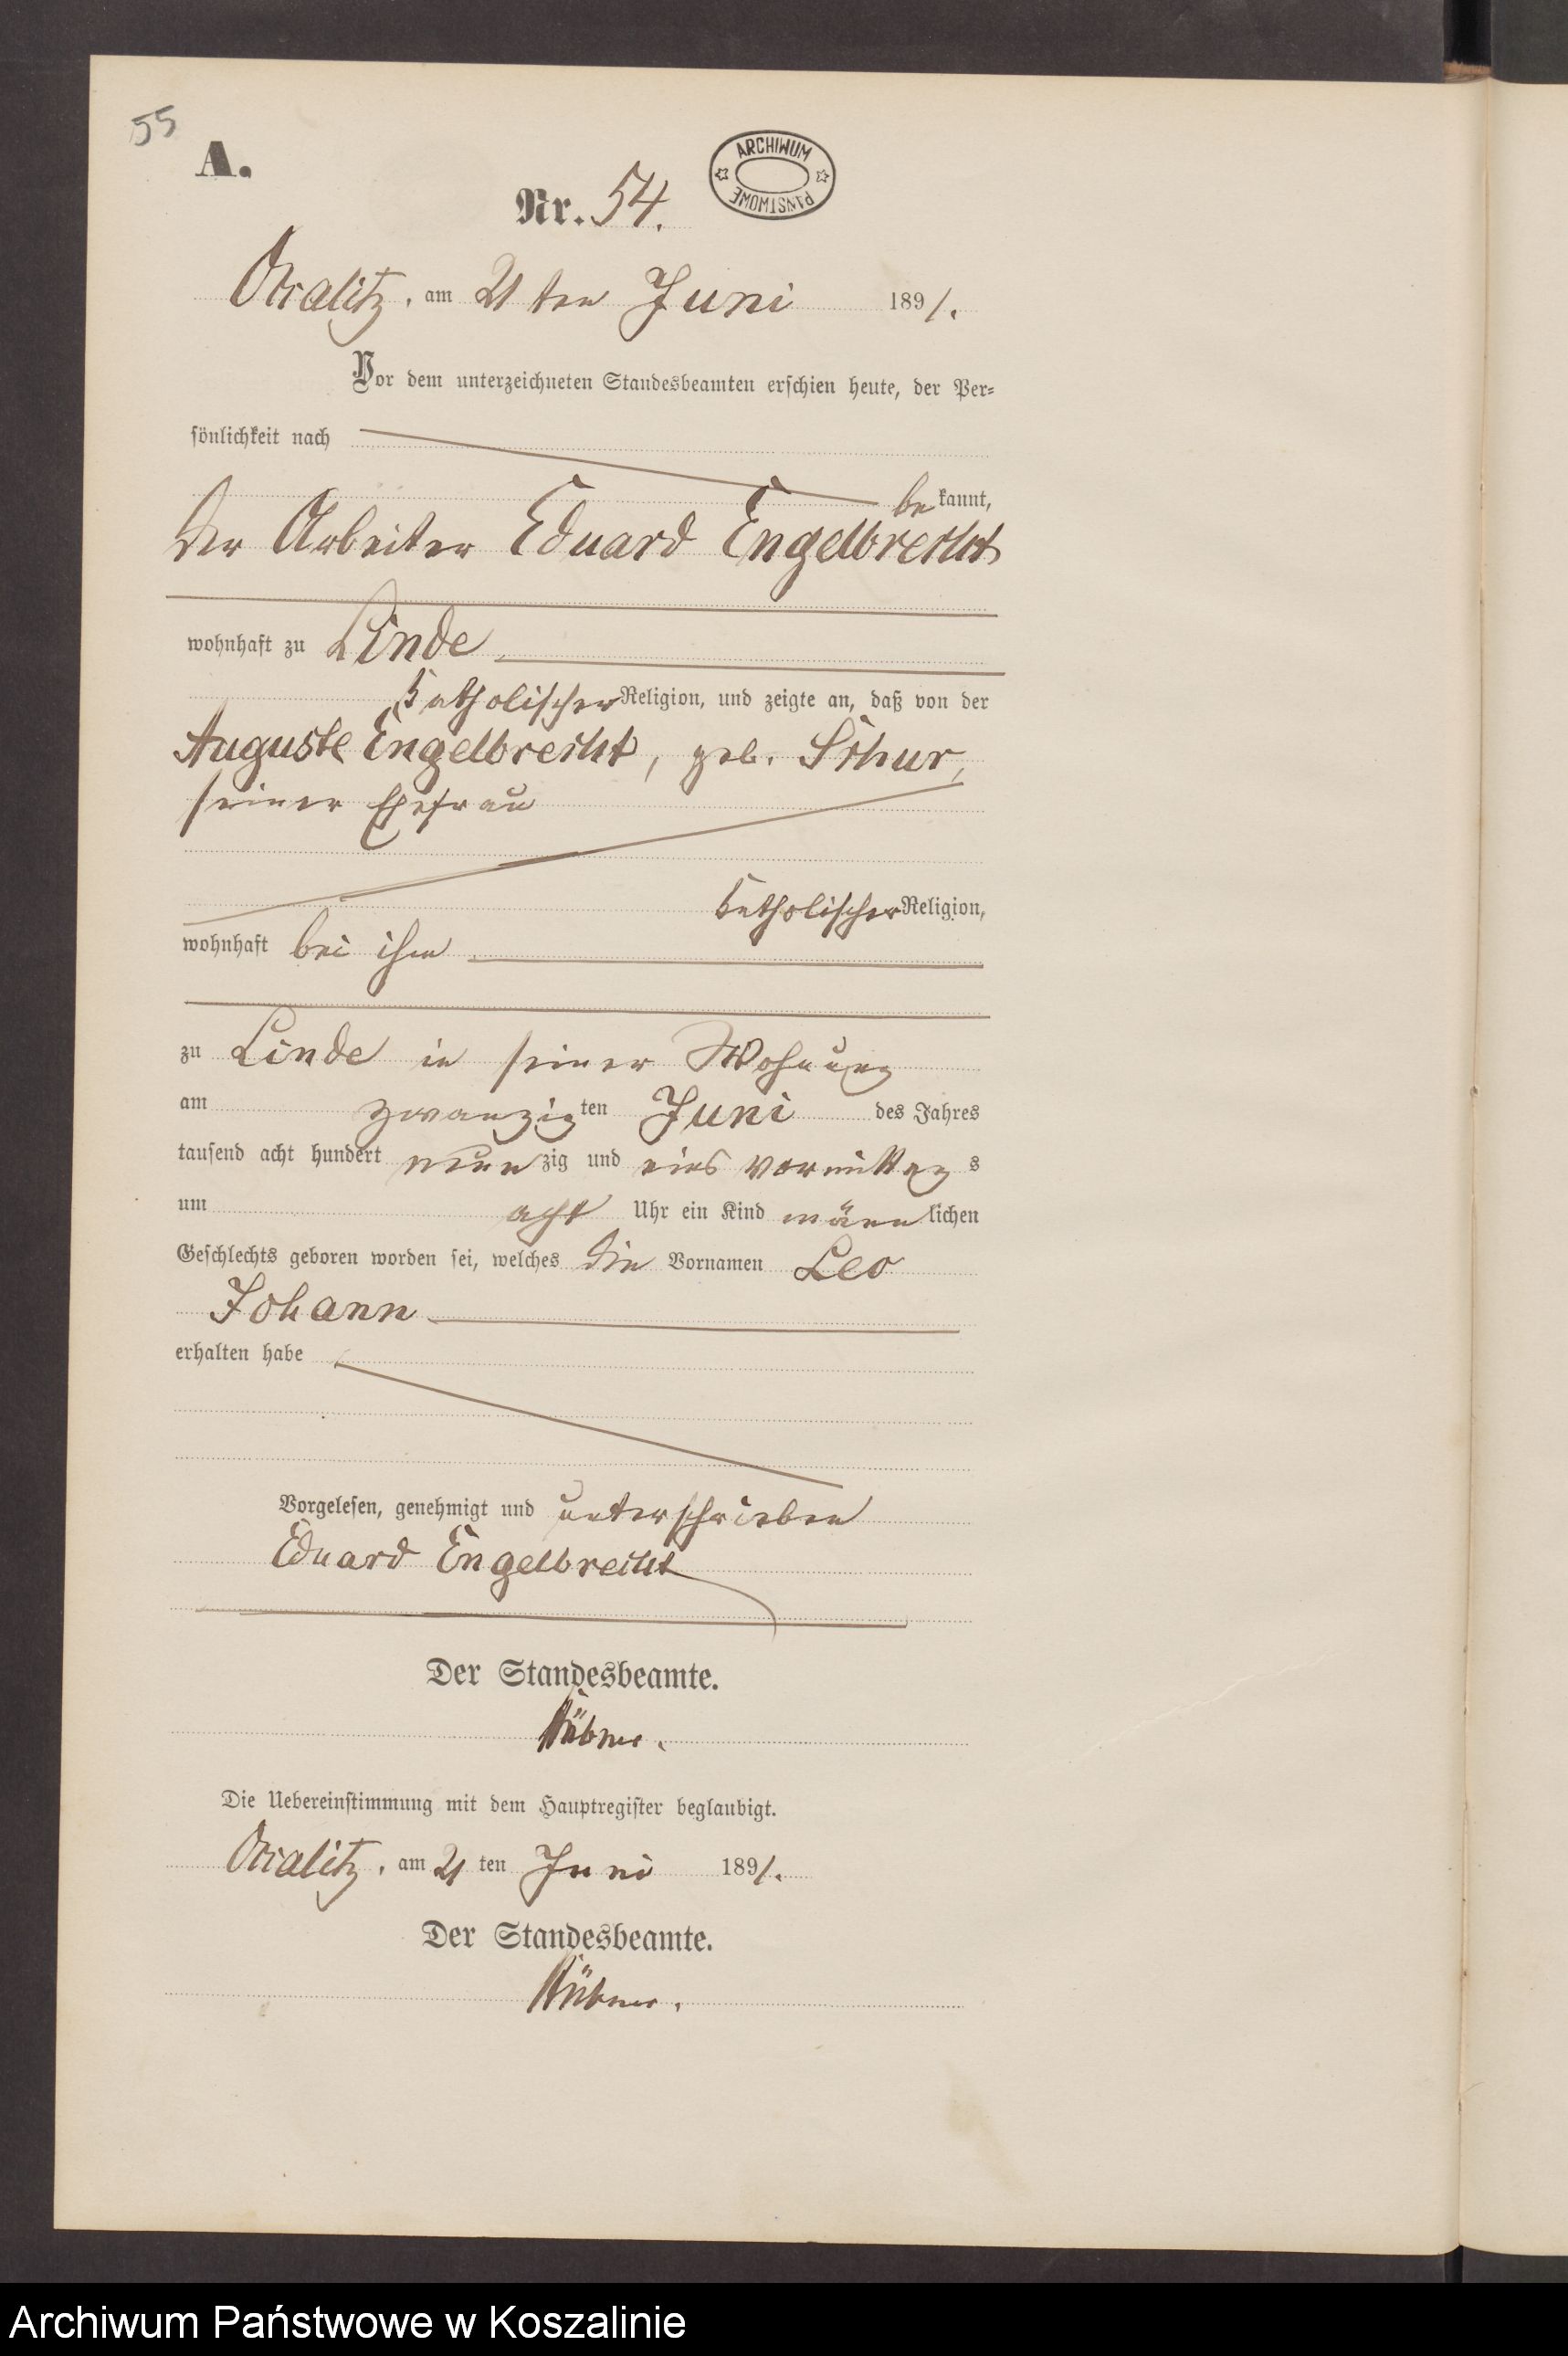 55
A.
ARCHIWUM PAŃSTWOWE
Nr. 54.
am 21 ten Juni 1891.
Vor dem unterzeichneten Standesbeamten erschien heute, der Per=
sönlichkeit nach
be kannt,
der Arbeiter Eduard Engelbrecht
wohnhaft zu Linde
katholischer Religion, und zeigte an, daß von der
Auguste Engelbrecht, geb. Schur,
seiner Ehefrau
katholischer Religion,
wohnhaft bei ihm
zu Linde in seiner Wohnung
am zwanzig ten Juni des Jahres
tausend acht hundert neun zig und eins vormittag s
um acht Uhr ein Kind männ lichen
Geschlechts geboren worden sei, welches die Vornamen Leo
Johann
erhalten habe
Vorgelesen, genehmigt und unterschrieben
Eduard Engelbrecht
Der Standesbeamte.
Hübner.
Die Uebereinstimmung mit dem Hauptregister beglaubigt.
am 21 ten Juni 1891.
Der Standesbeamte.
Hübner.
Archiwum Państwowe w Koszalinie